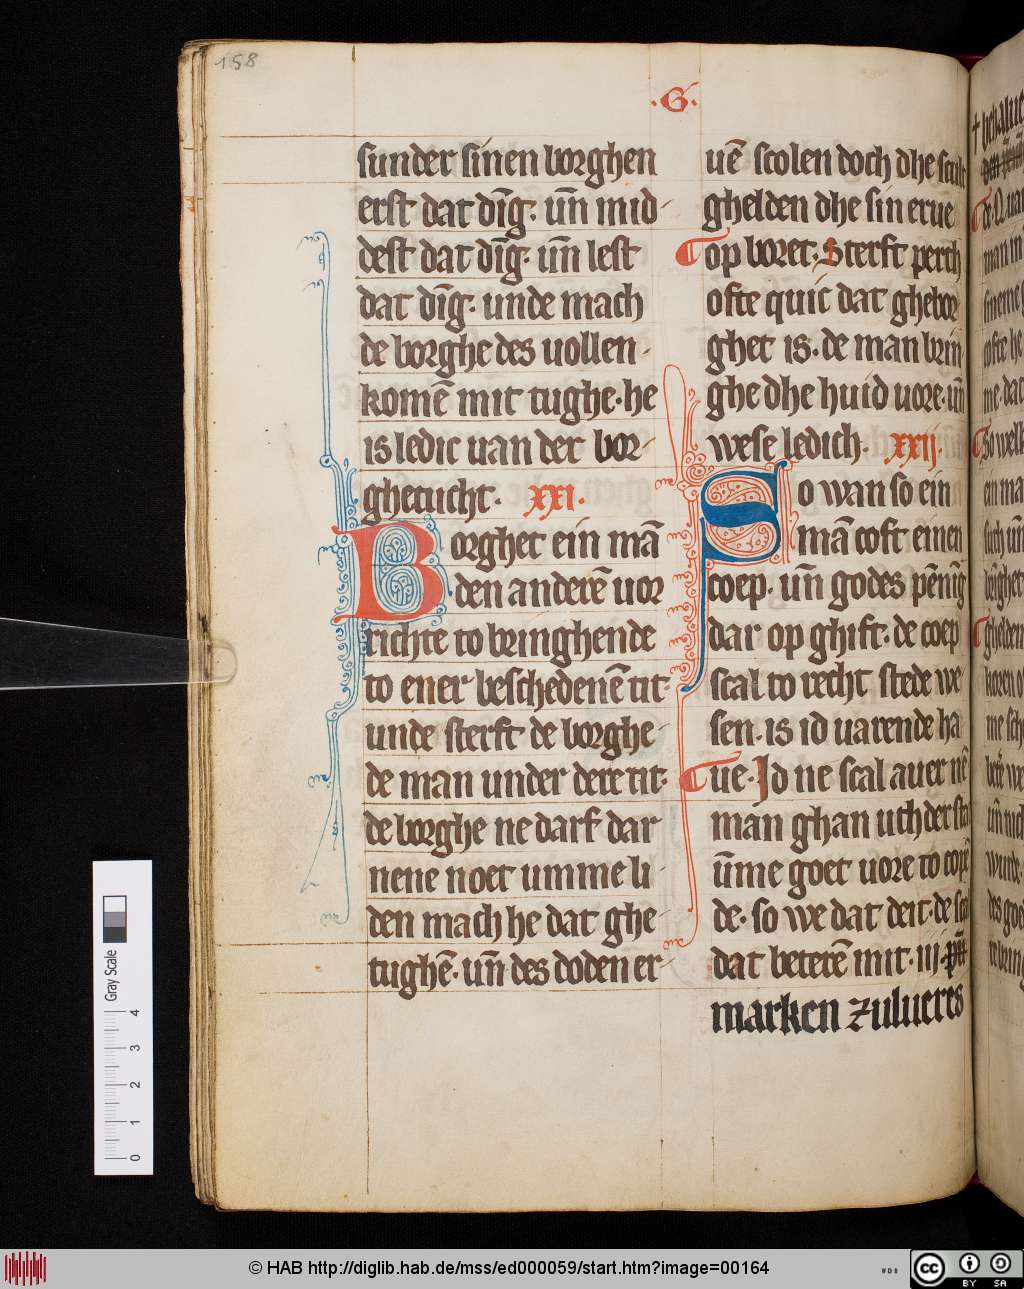 158
.G.
sunder sinen borghen
erst dat dīg. un̄ mid-
dest dat dīg. un̄ lest
dat dīg. unde mach
de borghe des uollen-
komē mit tughe. he
is ledic uan der bor-
ghetucht. xxi.
Borghet ein mā
den anderē uor
richte to bringhende
to ener beschedenē tit.
unde sterft de borghe-
de man under dere tit.
de borghe ne darf dar
nene noet umme li-
den mach he dat ghe-
tughē. un̄ des doden er-
uē scolen doch dhe scult
ghelden dhe sin erue
op boret. Sterft perch
ofte quic dat ghebor
ghet is. de man brin
ghe dhe huid uore. un̄
wese ledich. xxij
So wan so ein
mā coft einen
coep. un̄ godes pēnīg
dar op ghift. de coep
scal to recht stede we
sen. is id uarende ha
ue. Jd ne scal auer nē
man ghan uth der sta
ūme goet uore to copē
de. so we dat deit. de scal
dat beterē mit. iij.
marken zulueres
Gray Scale
0 1 2 3 4
© HAB http://diglib.hab.de/mss/ed000059/start.htm?image=00164
cc BY SA